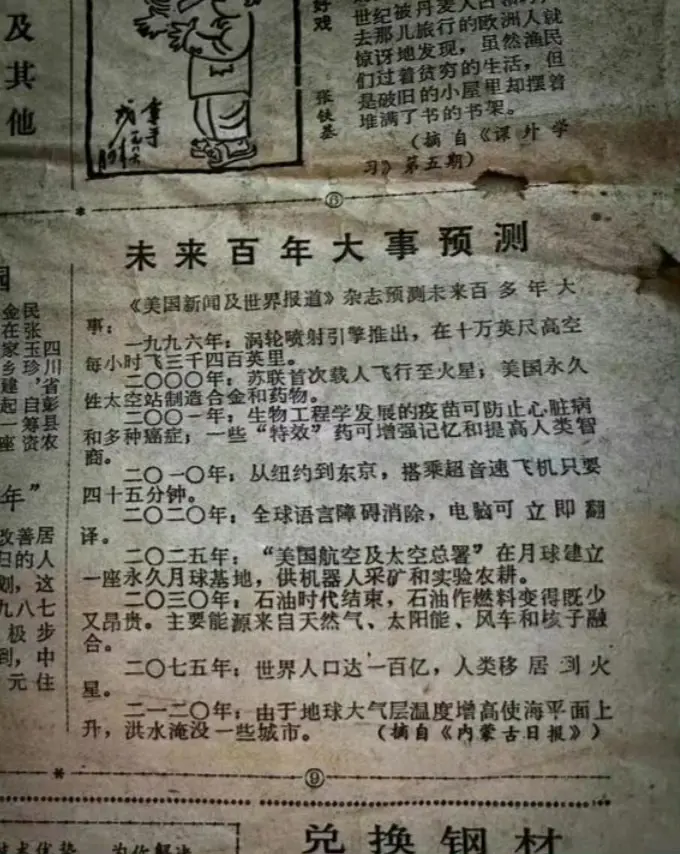 及其他
好戏
张铁基
世纪被丹麦人占
去那儿旅行的欧洲人就
惊讶地发现,虽然渔民
们过着贫穷的生活,但
是破旧的小屋里却摆着
堆满了书的书架。
(摘自《课外学
习》第五期)
⑥
未来百年大事预测
《美国新闻及世界报道》杂志预测未来百多年大
事:
一九九六年:涡轮喷射引擎推出,在十万英尺高空
每小时飞三千四百英里。
二〇〇〇年:苏联首次载人飞行至火星;美国永久
性太空站制造合金和药物。
二〇〇一年:生物工程学发展的疫苗可防止心脏病
和多种癌症;一些“特效”药可增强记忆和提高人类智
商。
二〇一〇年:从纽约到东京,搭乘超音速飞机只要
四十五分钟。
二〇二〇年:全球语言障碍消除,电脑可立即翻
译。
二〇二五年:“美国航空及太空总署”在月球建立
一座永久月球基地,供机器人采矿和实验农耕。
二〇三〇年:石油时代结束,石油作燃料变得既少
又昂贵。主要能源来自天然气、太阳能、风车和核子融
合。
二〇七五年:世界人口达一百亿,人类移居到火
星。
二一二〇年:由于地球大气层温度增高使海平面上
升,洪水淹没一些城市。 (摘自《内蒙古日报》)
⑨
园
四川省彭县农
民张玉珍,自筹资
金在家乡建起一座
年”
改善居
归的人
划,这
九八七
极步
到,中
元住
技术优势 为你解决
兑换钢材